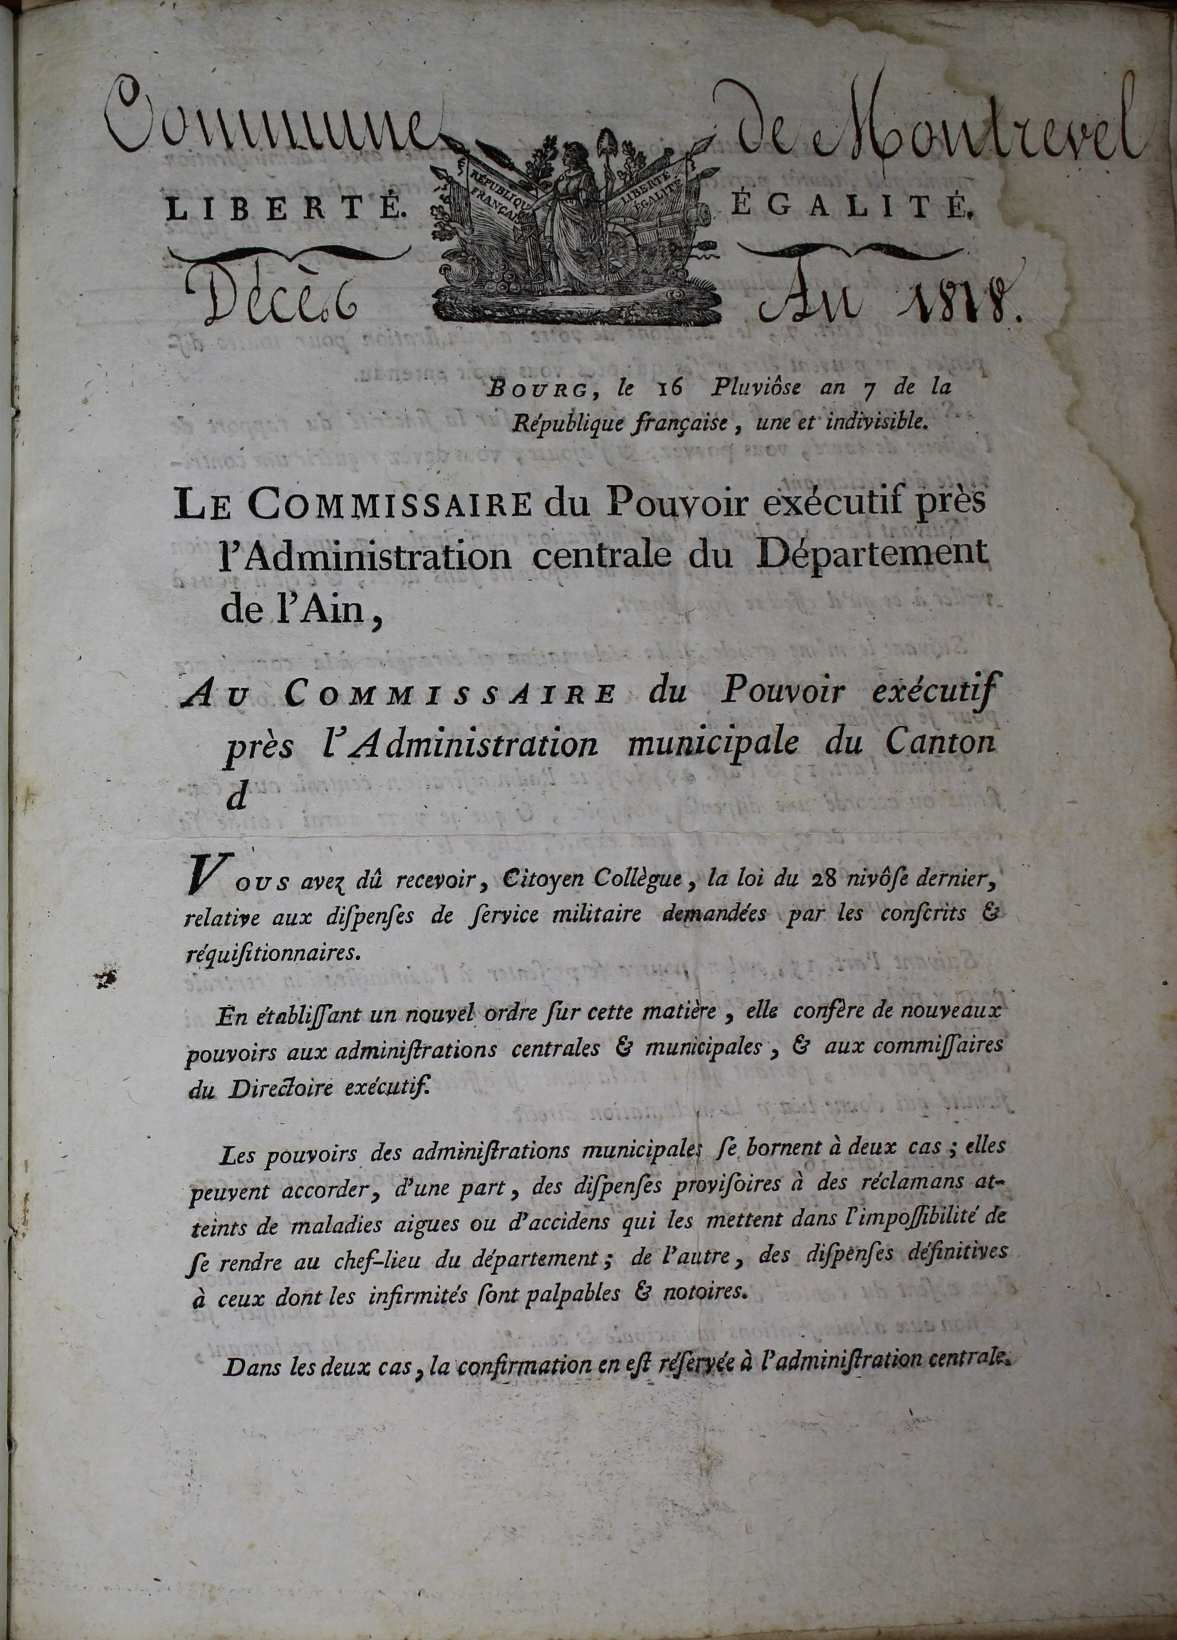 Commune de Montrevel
RÉPUBLIQUE
FRANÇAISE
LIBERTÉ
ÉGALITÉ
LIBERTÉ. ÉGALITÉ.
Décès An 1818.
BOURG, le 16 Pluviôse an 7 de la
République françaiſe, une et indiviſible.
LE COMMISSAIRE du Pouvoir exécutif près
l'Adminiſtration centrale du Département
de l'Ain,
AU COMMISSAIRE du Pouvoir exécutif
près l'Adminiſtration municipale du Canton
d
VOUS avez dû recevoir, Citoyen Collègue, la loi du 28 nivôſe dernier,
relative aux diſpenſes de ſervice militaire demandées par les conſcrits &
réquiſitionnaires.
En établiſſant un nouvel ordre ſur cette matière, elle confère de nouveaux
pouvoirs aux adminiſtrations centrales & municipales, & aux commiſſaires
du Directoire exécutif.
Les pouvoirs des adminiſtrations municipales ſe bornent à deux cas ; elles
peuvent accorder, d'une part, des diſpenſes proviſoires à des réclamans at-
teints de maladies aigues ou d'accidens qui les mettent dans l'impoſſibilité de
ſe rendre au chef-lieu du département ; de l'autre, des diſpenſes définitives
à ceux dont les infirmités ſont palpables & notoires.
Dans les deux cas, la confirmation en eſt réſervée à l'adminiſtration centrale.